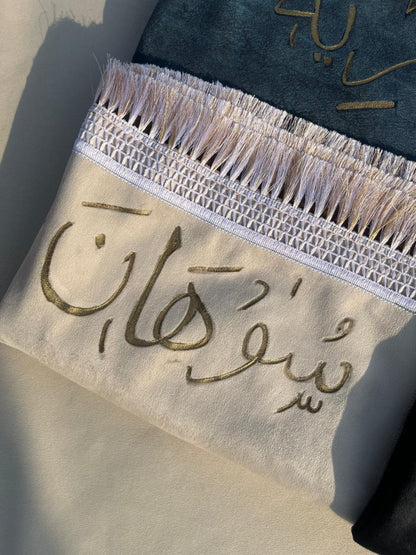 سُوهَان